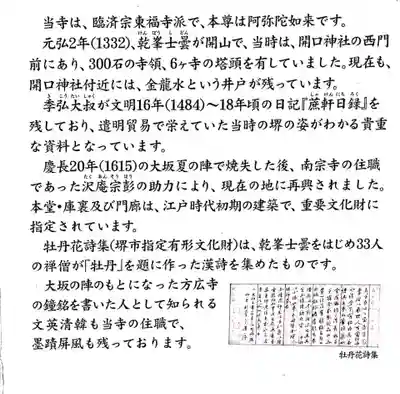 当寺は、臨済宗東福寺派で、本尊は阿弥陀如来です。
元弘2年(1332)、乾峯士曇が開山で、当時は、開口神社の西門
前にあり、300石の寺領、6ヶ寺の塔頭を有していました。現在も、
開口神社付近には、金龍水という井戸が残っています。
季弘大叔が文明16年(1484)〜18年頃の日記『蔗軒日録』を
残しており、遣明貿易で栄えていた当時の堺の姿がわかる貴重
な資料となっています。
慶長20年(1615)の大坂夏の陣で焼失した後、南宗寺の住職
であった沢庵宗彭の助力により、現在の地に再興されました。
本堂・庫裏及び門廊は、江戸時代初期の建築で、重要文化財
に指定されています。
牡丹花詩集(堺市指定有形文化財)は、乾峯士曇をはじめ33人
の禅僧が「牡丹」を題に作った漢詩を集めたものです。
大坂の陣のもとになった方広寺
の鐘銘を書いた人として知られる
文英清韓も当寺の住職で、
墨蹟屏風も残っております。
牡丹花詩集